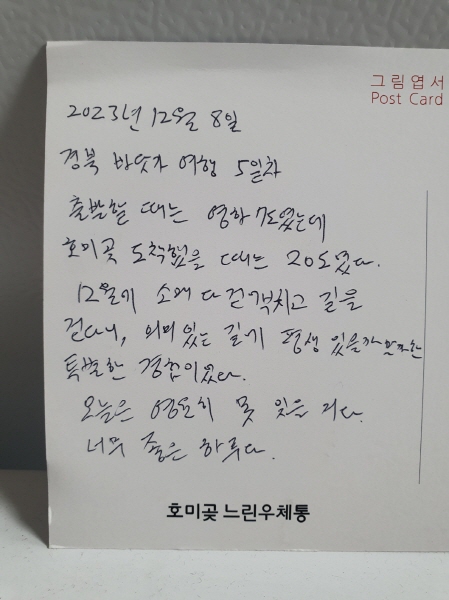 그림엽서
Post Card
2023년 12월 8일
경북 바닷가 여행 5일차
출발할 때는 영하 7도였는데
호미곶 도착했을 때는 20도였다.
12월에 소매 다 걷어붙이고 길을
걷다니, 의미 있는 길에 평생 있을까
특별한 경험이었다.
오늘은 영원히 못 잊을 거다.
너무 좋은 하루다.
호미곶 느린우체통